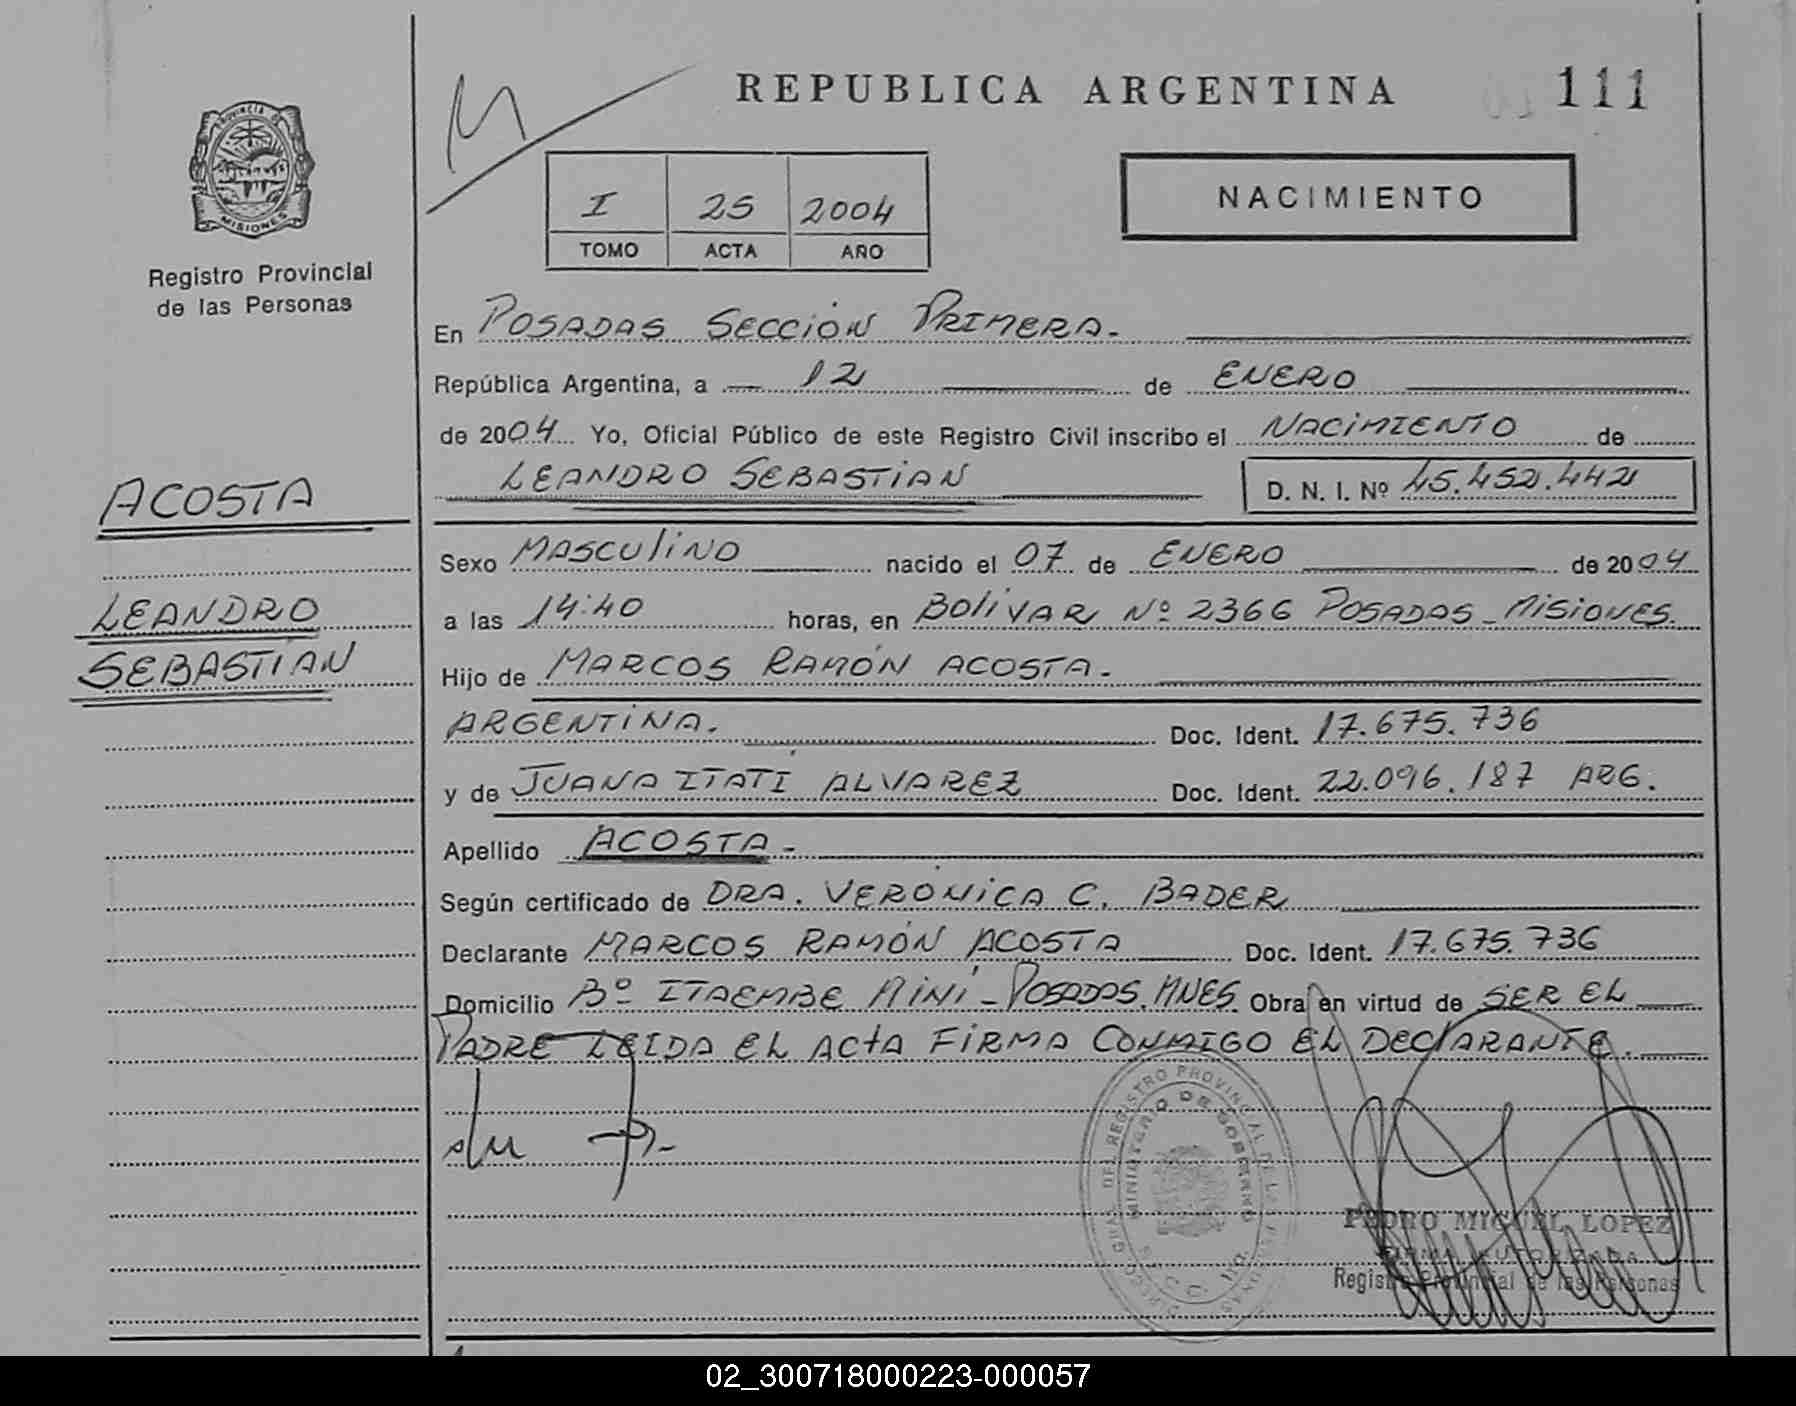 REPUBLICA ARGENTINA
111
PROVINCIA DE
MISIONES
Registro Provincial
de las Personas
M
I 25 2004
TOMO ACTA AÑO
NACIMIENTO
En POSADAS SECCIÓN PRIMERA.
República Argentina, a 12 de ENERO
de 2004 Yo, Oficial Público de este Registro Civil inscribo el NACIMIENTO de
LEANDRO SEBASTIAN D. N. I. Nº 45.452.442
ACOSTA
LEANDRO
SEBASTIAN
Sexo MASCULINO nacido el 07 de ENERO de 2004
a las 14:40 horas, en BOLIVAR Nº 2366 POSADAS - MISIONES.
Hijo de MARCOS RAMÓN ACOSTA.
ARGENTINA. Doc. Ident. 17.675.736
y de JUANA ITATÍ ALVAREZ Doc. Ident. 22.096.187 ARG.
Apellido ACOSTA -
Según certificado de DRA. VERÓNICA C. BADER
Declarante MARCOS RAMÓN ACOSTA Doc. Ident. 17.675.736
Domicilio Bº ITAEMBE MINÍ - POSADAS, MNES. Obra en virtud de SER EL
PADRE LEIDA EL ACTA FIRMA CONMIGO EL DECLARANTE.
REGISTRO PROVINCIAL DE LAS PERSONAS
MINISTERIO DE GOBIERNO
PEDRO MIGUEL LOPEZ
FIRMA AUTORIZADA
Registro Provincial de las Personas
02_300718000223-000057